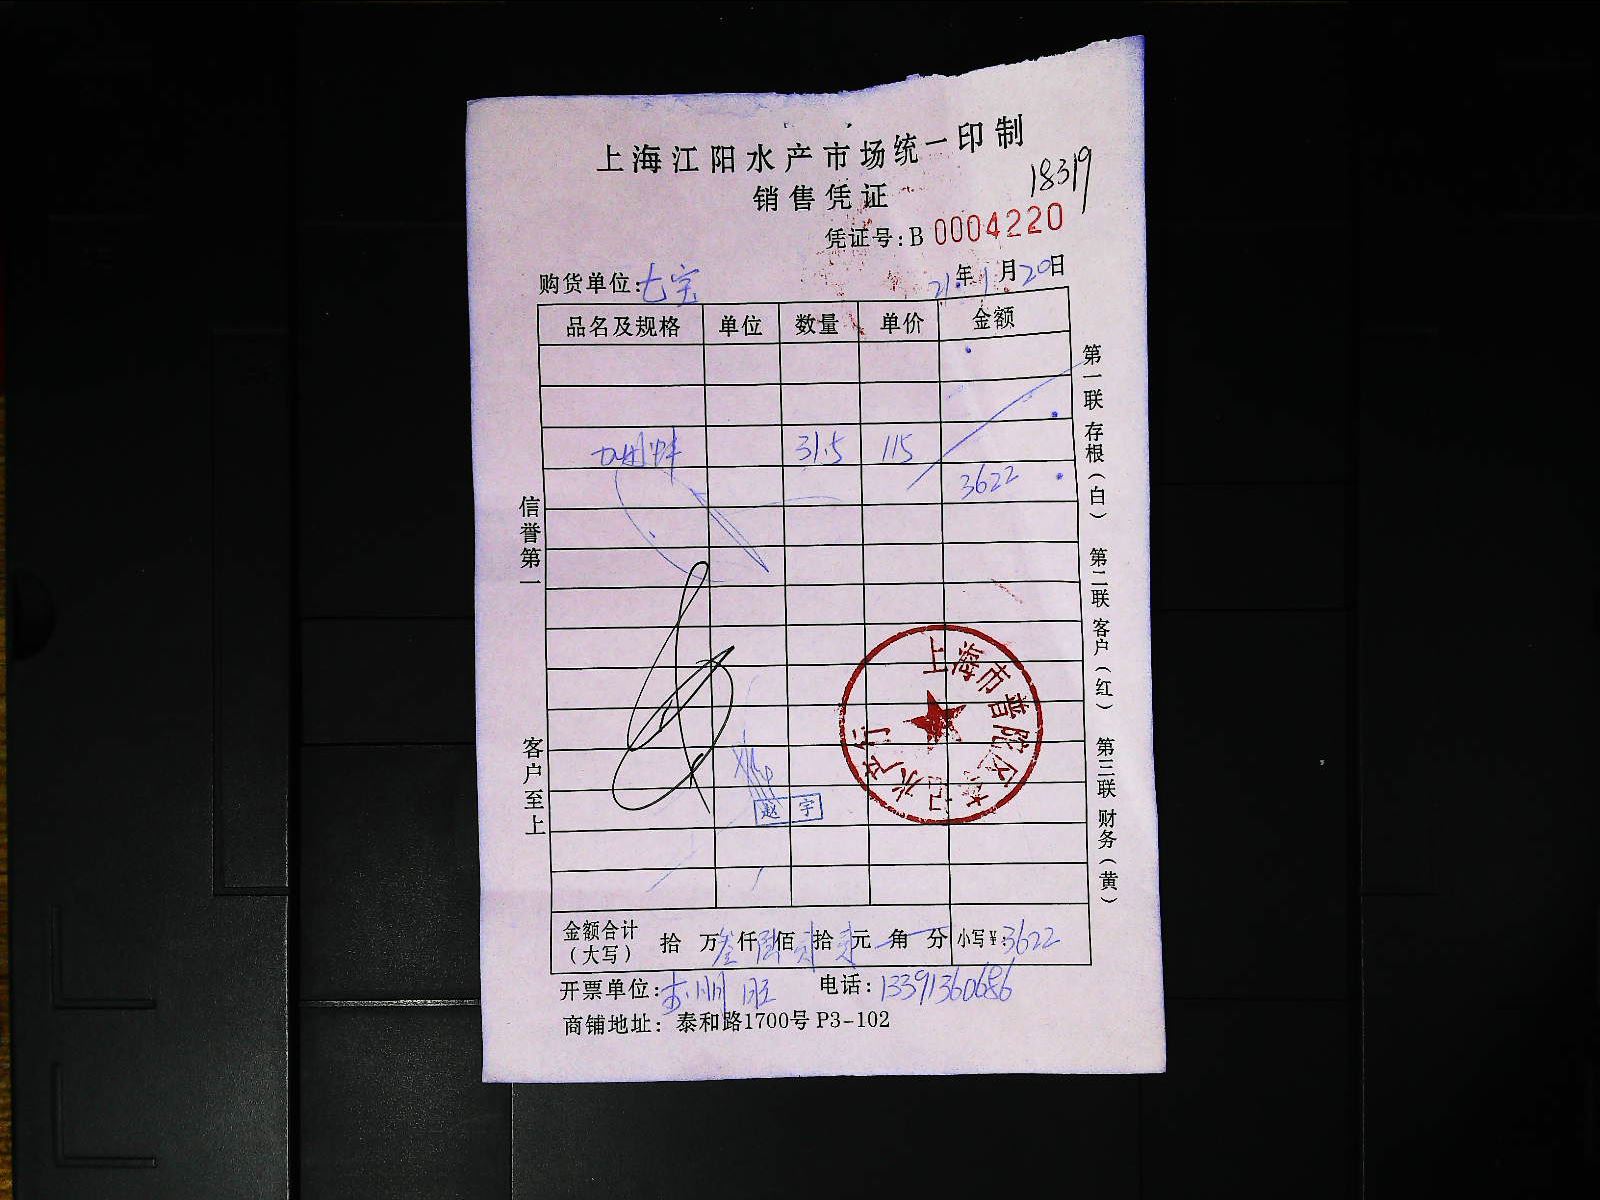 上海江阳水产市场统一印制
18319
销售凭证
凭证号:B 0004220
购货单位:七宝
21年1月20日
品名及规格 单位 数量 单价 金额
31.5 115
3622
信誉第一
客户至上
第一联 存根(白) 第二联 客户(红) 第三联 财务(黄)
上海市普陀区 记水产行
赵宇
金额合计(大写) 拾 万叁仟陆佰贰拾贰元 角 分 小写¥:3622
开票单位: 电话:13391360686
商铺地址: 泰和路1700号 P3-102